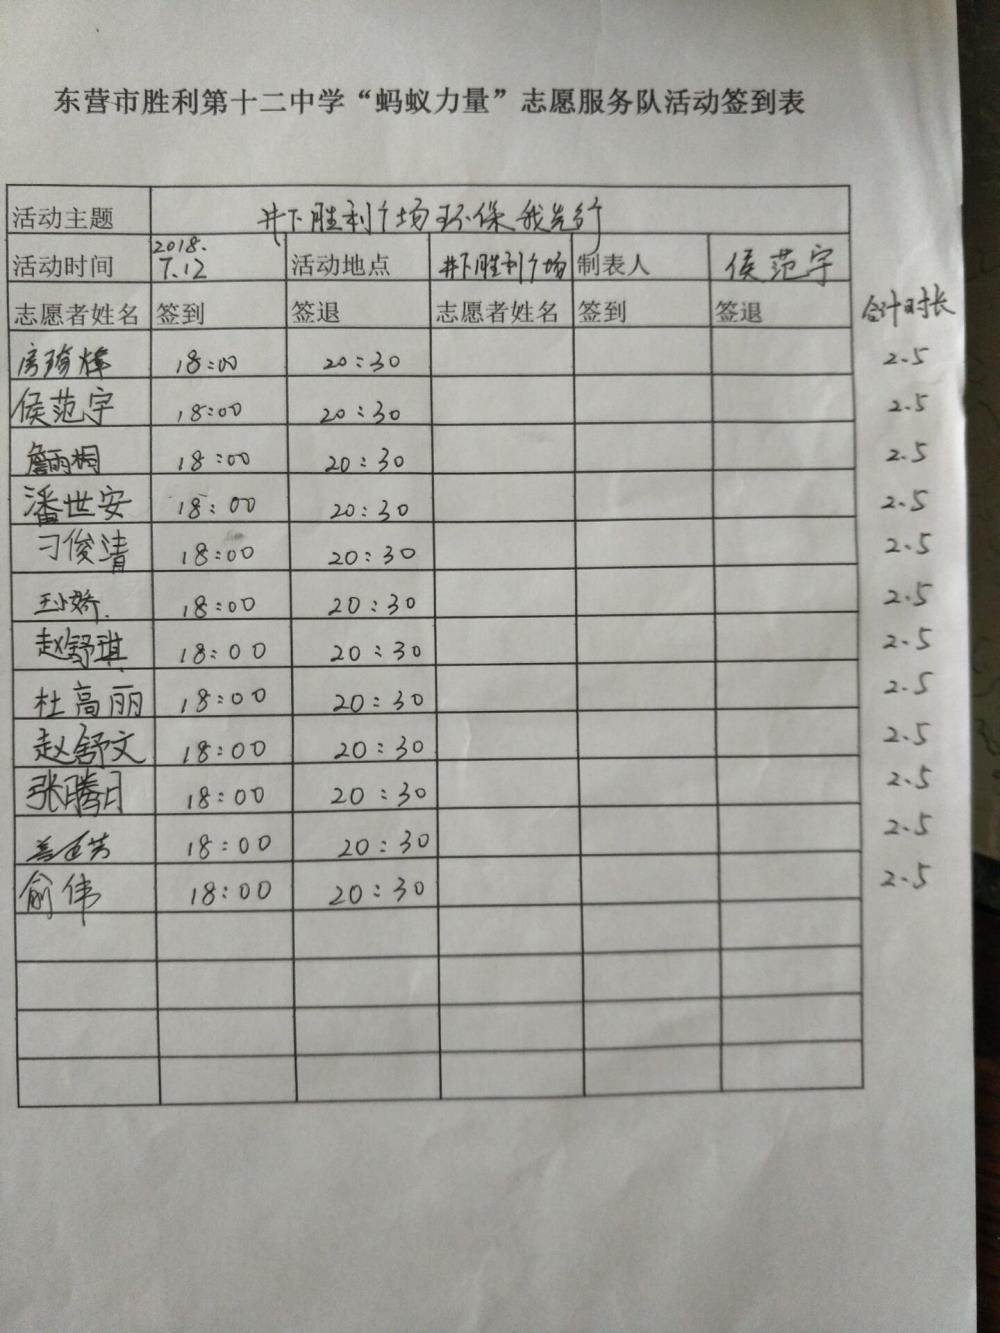 东营市胜利第十二中学“蚂蚁力量”志愿服务队活动签到表
活动主题 井下胜利广场环保我先行
活动时间 2018.7.12 活动地点 井下胜利广场 制表人 侯范宇
志愿者姓名 签到 签退 志愿者姓名 签到 签退 合计时长
房琦烽 18:00 20:30 2.5
侯范宇 18:00 20:30 2.5
詹雨桐 18:00 20:30 2.5
潘世安 18:00 20:30 2.5
刁俊清 18:00 20:30 2.5
王小娇. 18:00 20:30 2.5
赵舒琪 18:00 20:30 2.5
杜高丽 18:00 20:30 2.5
赵舒文 18:00 20:30 2.5
张腾月 18:00 20:30 2.5
18:00 20:30 2.5
俞伟 18:00 20:30 2.5